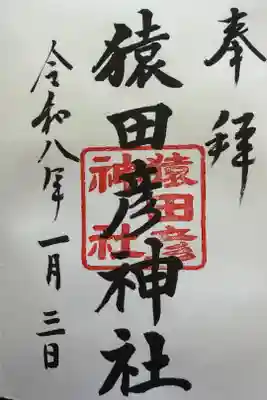 奉拝
猿田彦神社
猿田彦
神社
令和八年一月三日